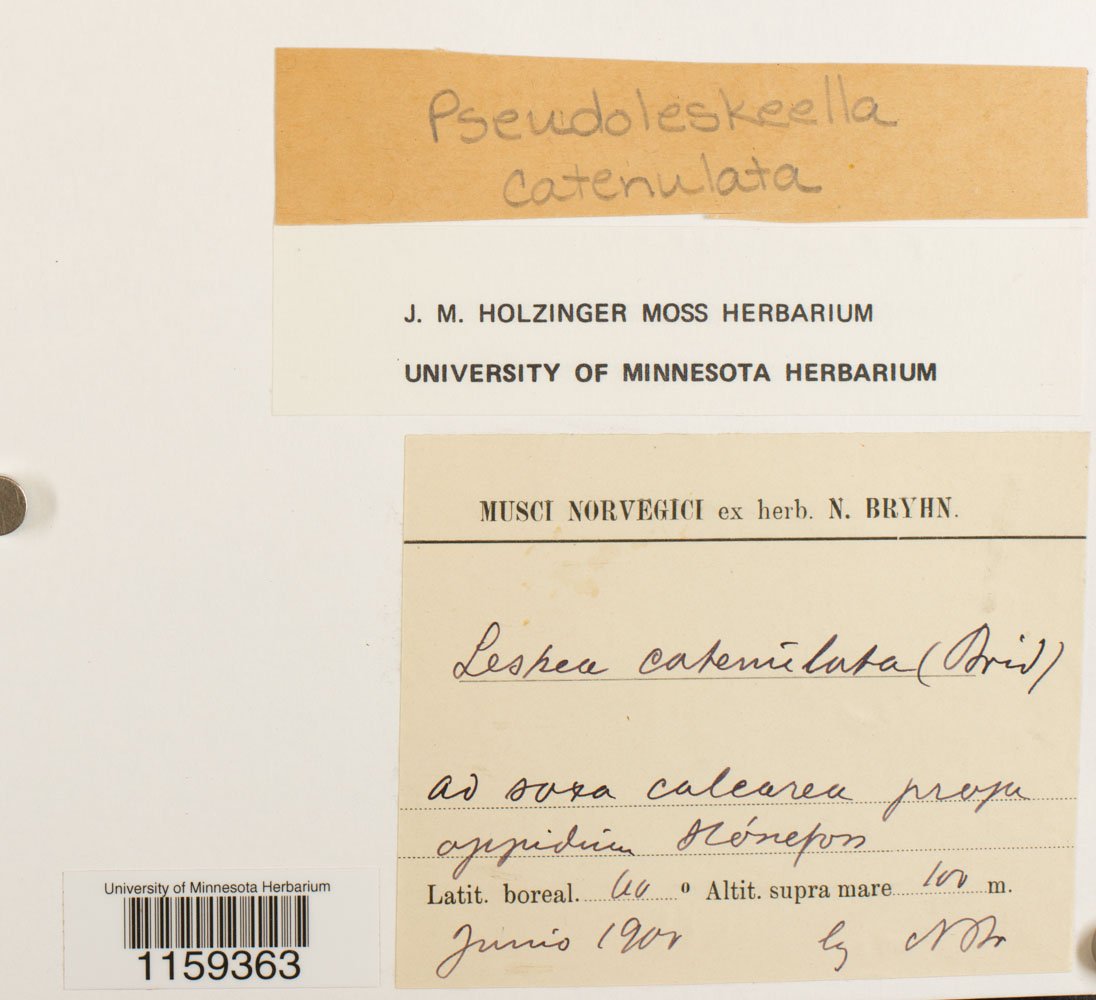 Pseudoleskeella
catenulata
J. M. HOLZINGER MOSS HERBARIUM
UNIVERSITY OF MINNESOTA HERBARIUM
MUSCI NORVEGICI ex herb. N. BRYHN.
Leskea catenulata (Brid)
ad saxa calcarea prope
oppidum Hönefoss
Latit. boreal. 60 ° Altit. supra mare 100 m.
Junio 1900 lg N Br
University of Minnesota Herbarium
1159363